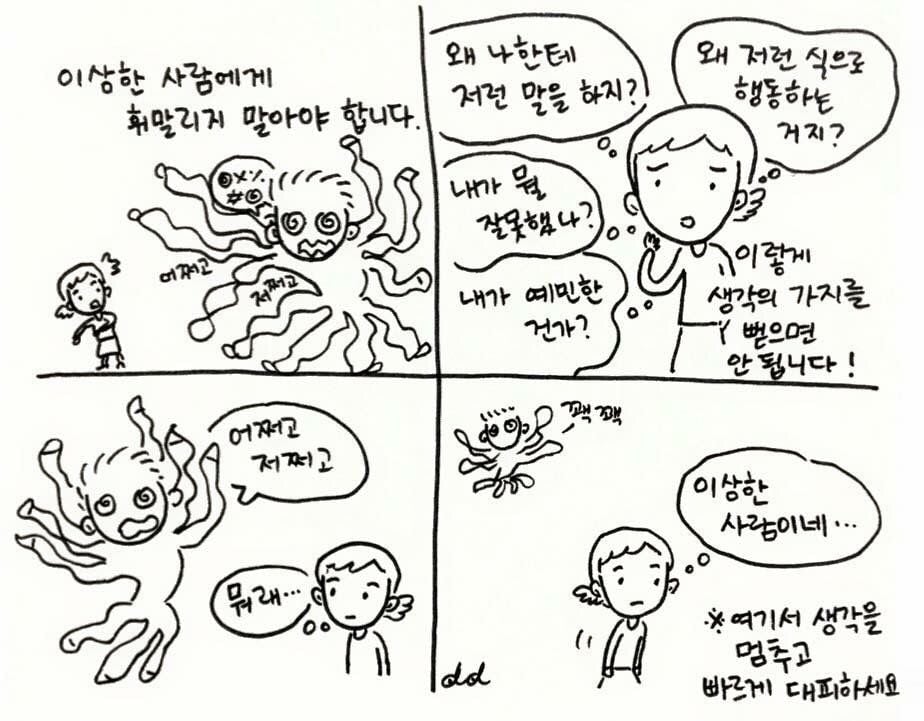 이상한 사람에게
휘말리지 말아야 합니다.
@×%
#@
어쩌고
저쩌고
왜 나한테
저런 말을 하지?
왜 저런 식으로
행동하는
거지?
내가 뭘
잘못했나?
내가 예민한
건가?
이렇게
생각의 가지를
뻗으면
안 됩니다!
어쩌고
저쩌고
뭐래…
꽥 꽥
이상한
사람이네…
※여기서 생각을
멈추고
빠르게 대피하세요
dd